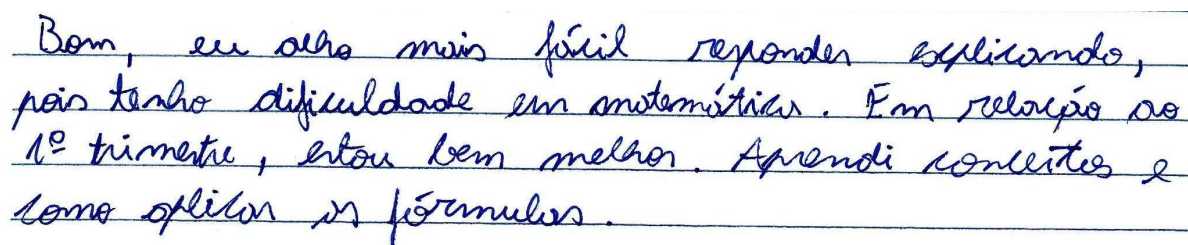 Bom, eu acho mais fácil responder explicando,
pois tenho dificuldade em matemática. Em relação ao
1º trimestre, estou bem melhor. Aprendi conceitos e
como aplicar as fórmulas.